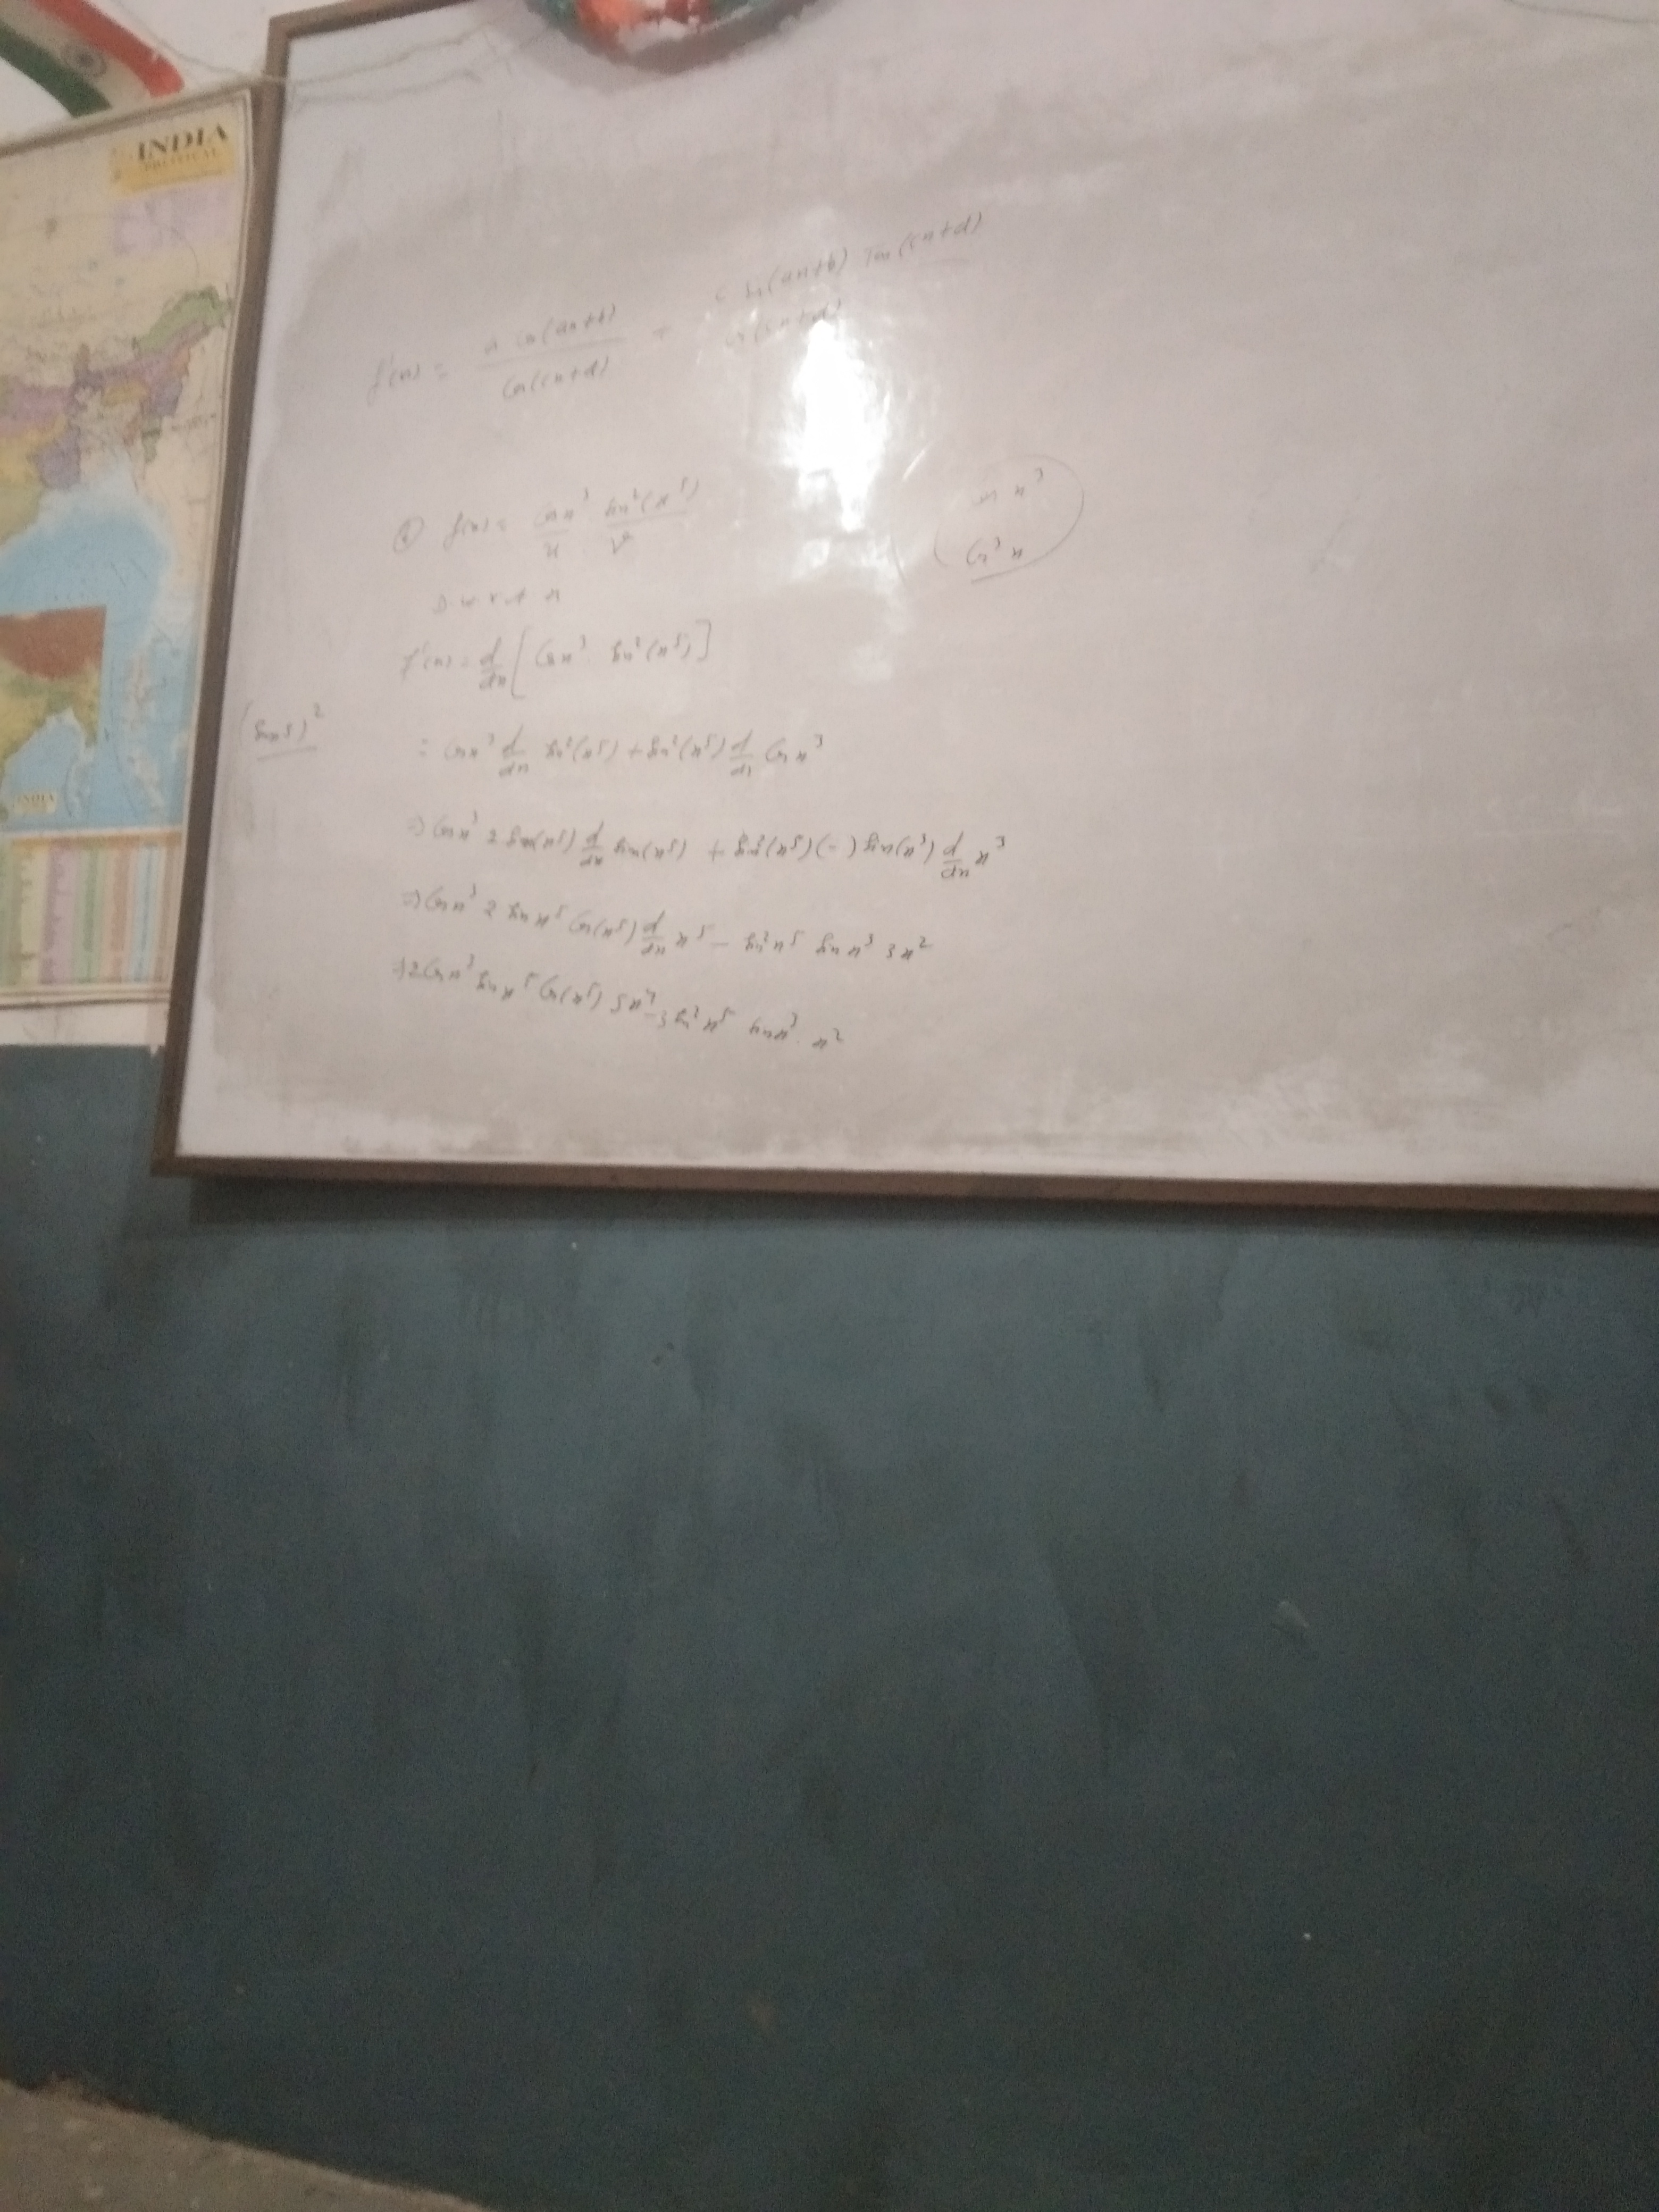 INDIA
POLITICAL
f'(x) = a cos(ax+b) / cos(cx+d) + c sin(ax+b) Tan(cx+d) / cos(cx+d)
f(x) = cos x³ . sin²(x⁵)
u . v
D. w. r. t x
cos x³
cos³ x
f'(x) = d/dx [cos x³ . sin²(x⁵)]
(sin x⁵)²
= cos x³ d/dx sin²(x⁵) + sin²(x⁵) d/dx cos x³
⇒ cos x³ 2 sin(x⁵) d/dx sin(x⁵) + sin²(x⁵) (-) sin(x³) d/dx x³
⇒ cos x³ 2 sin x⁵ cos(x⁵) d/dx x⁵ - sin² x⁵ sin x³ 3x²
⇒ 2 cos x³ sin x⁵ cos(x⁵) 5x⁴ - 3 sin² x⁵ sin x³ . x²
INDIA